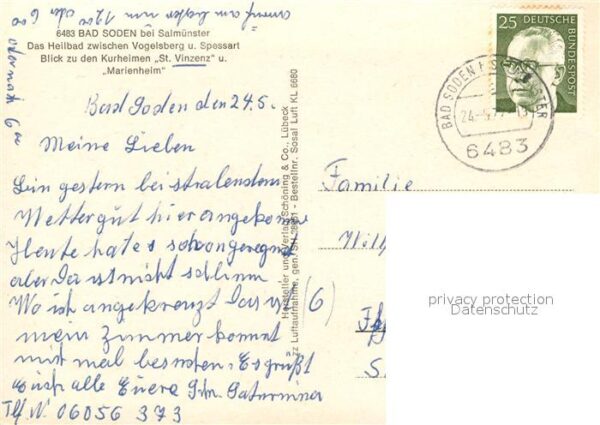 6483 BAD SODEN bei Salmünster
Das Heilbad zwischen Vogelsberg u. Spessart
Blick zu den Kurheimen „St. Vinzenz" u.
„Marienheim"
Bad Soden den 24.5.
Meine Lieben
Bin gestern bei stralendem
Wetter gut hier angekomme
Heute hat es schon geregnet
aber Da ist nicht schlimm
Wo ich angekreuzt Das ist
mein Zimmer kommt
mich mal besuchen. Es grüßt
Euch alle Euere
Tlf. N. 06056 373
anruf am besten um 1200 oder 600
Hersteller und Verlag Schöning & Co., Lübeck
Luftaufnahme, gen. - Bestellnr. Sosal Luft KL 6680
25 DEUTSCHE
BUNDESPOST
BAD SODEN
24.-5.
6483
Familie
(6)
privacy protection
Datenschutz